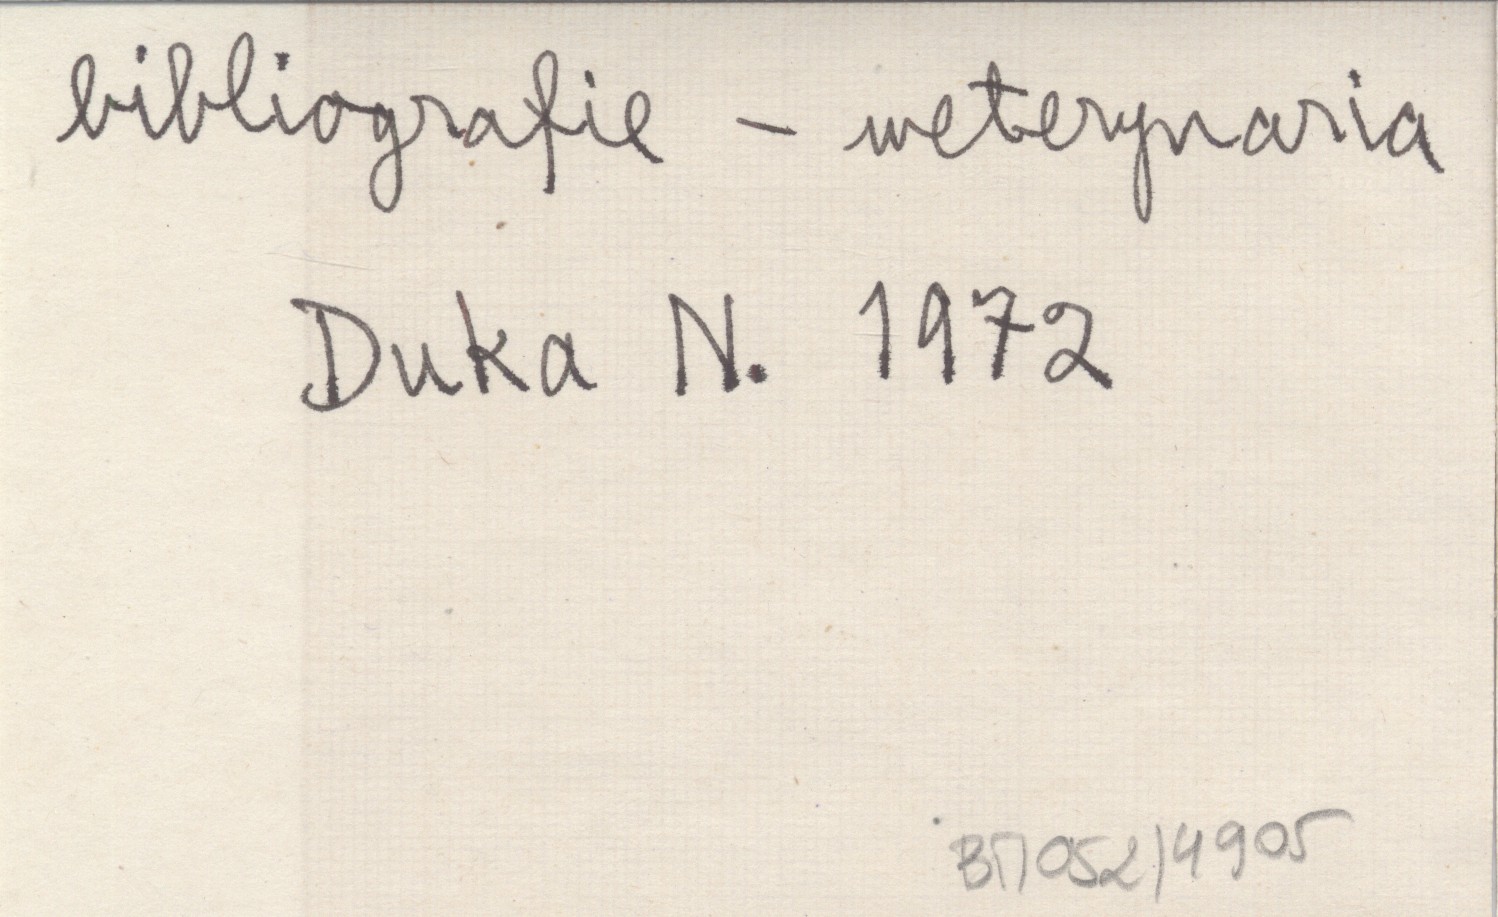 bibliografie – weterynaria
Duka N. 1972
ВП052/4905